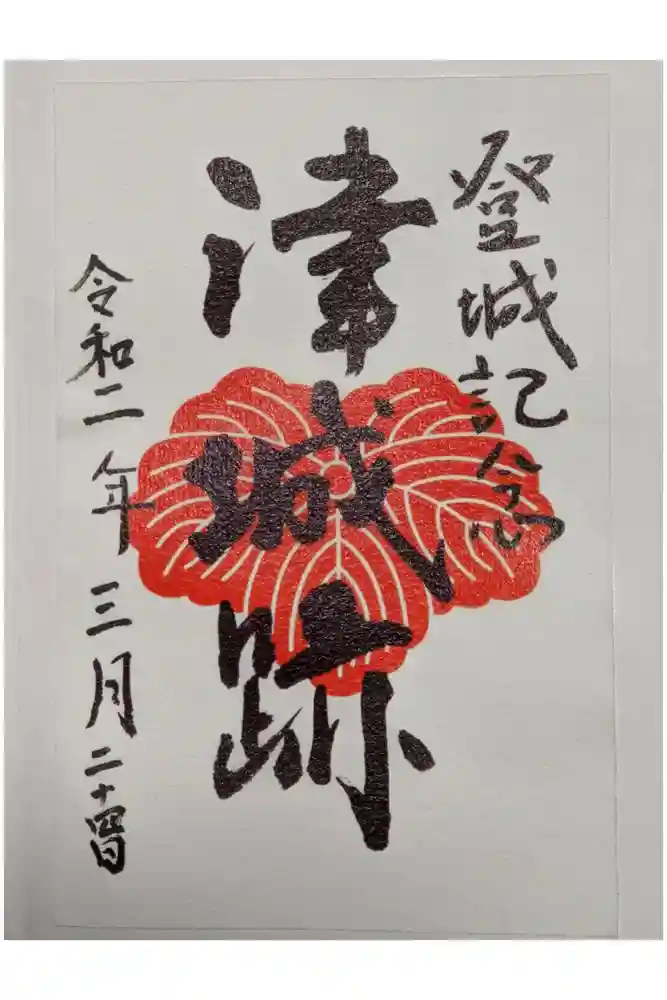 登城記念
津城跡
令和二年三月二十四日